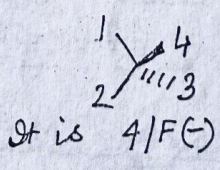 1
4
2
3
It is 4/F(-)